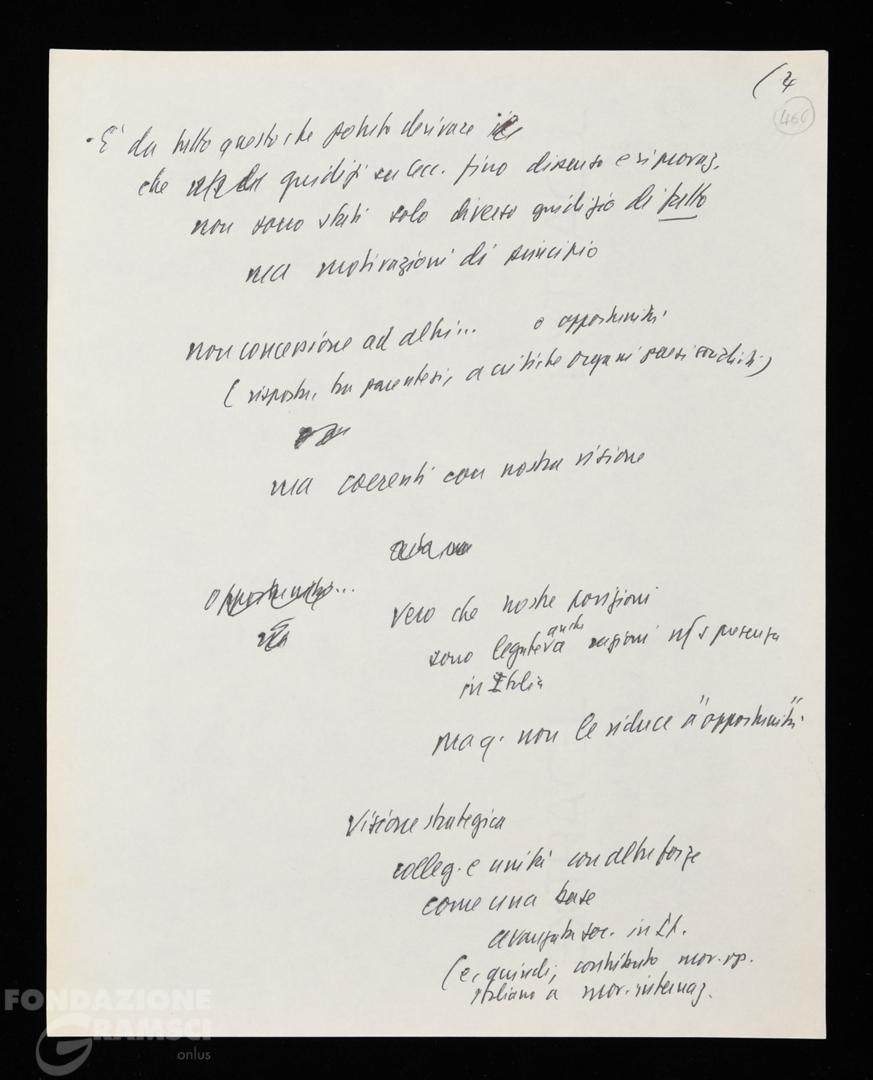 (4
466
- E' da tutto questo che potuto derivare
che giudizi succ. fino dissenso e riprovaz.
non sono stati solo diverso giudizio di fatto
ma motivazioni di principio
non concessione ad altri... o opportunità
(risposta, tra parentesi, a critiche organi paesi socialisti)
ma coerenti con nostra visione
opportunità...
Vero che nostre posizioni
sono legate anche a ragioni ns/ presenza
in Italia
Ma q. non le riduce a "opportunità"
Visione strategica
colleg. e unità con altre forze
come una base
avanzata soc. in It.
(e, quindi, contributo mov. op.
italiano a mov. internaz.
FONDAZIONE
GRAMSCI
onlus